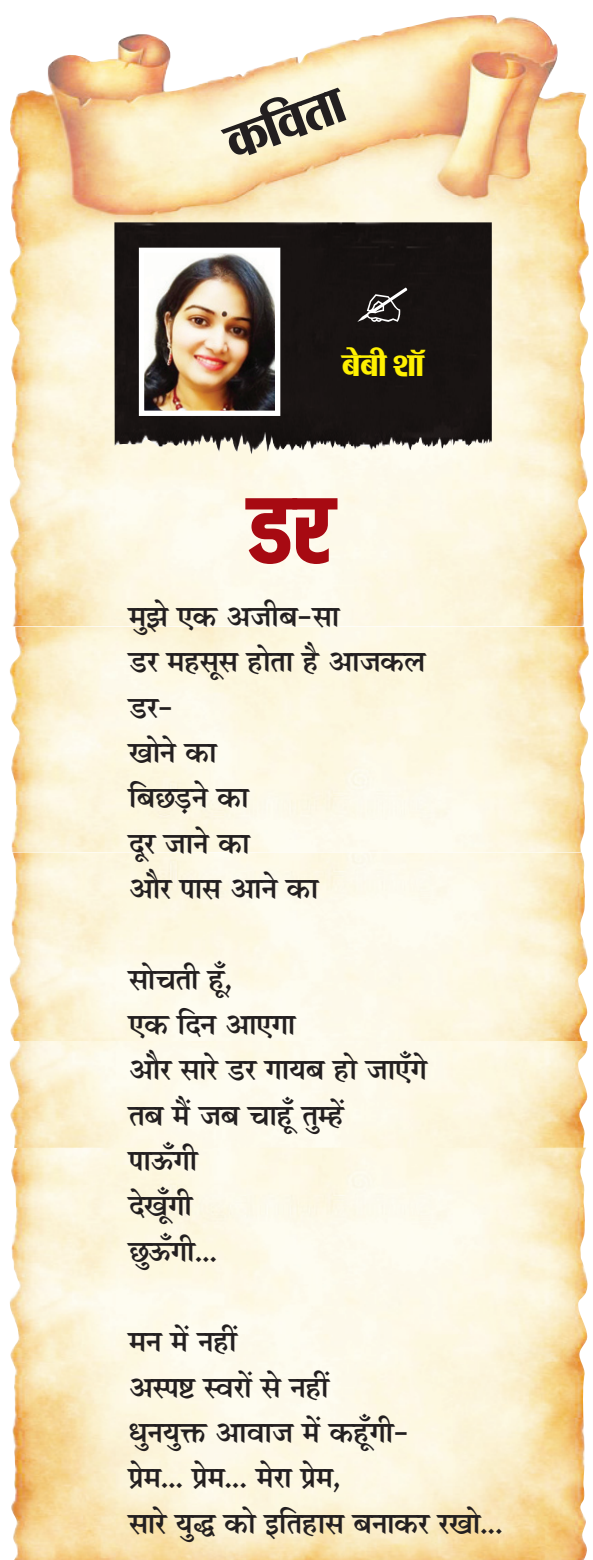 कविता
बेबी शॉ
डर
मुझे एक अजीब-सा
डर महसूस होता है आजकल
डर-
खोने का
बिछड़ने का
दूर जाने का
और पास आने का
सोचती हूँ,
एक दिन आएगा
और सारे डर गायब हो जाएँगे
तब मैं जब चाहूँ तुम्हें
पाऊँगी
देखूँगी
छुऊँगी...
मन में नहीं
अस्पष्ट स्वरों से नहीं
धुनयुक्त आवाज में कहूँगी-
प्रेम... प्रेम... मेरा प्रेम,
सारे युद्ध को इतिहास बनाकर रखो...